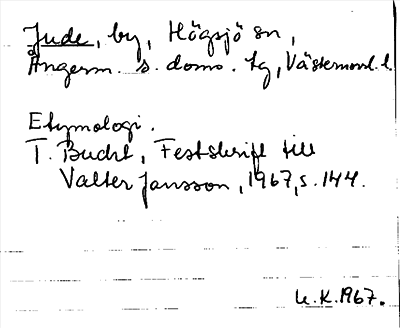 Jude, by, Högsjö sn,
Ångerm. s. doms. tg, Västernorrl. l.
Etymologi.
T. Bucht, Festskrift till
Valter Jansson, 1967, s. 144.
U.K. 1967.